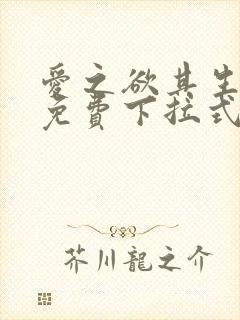 愛之欲其生
免費下拉式
芥川龍之介